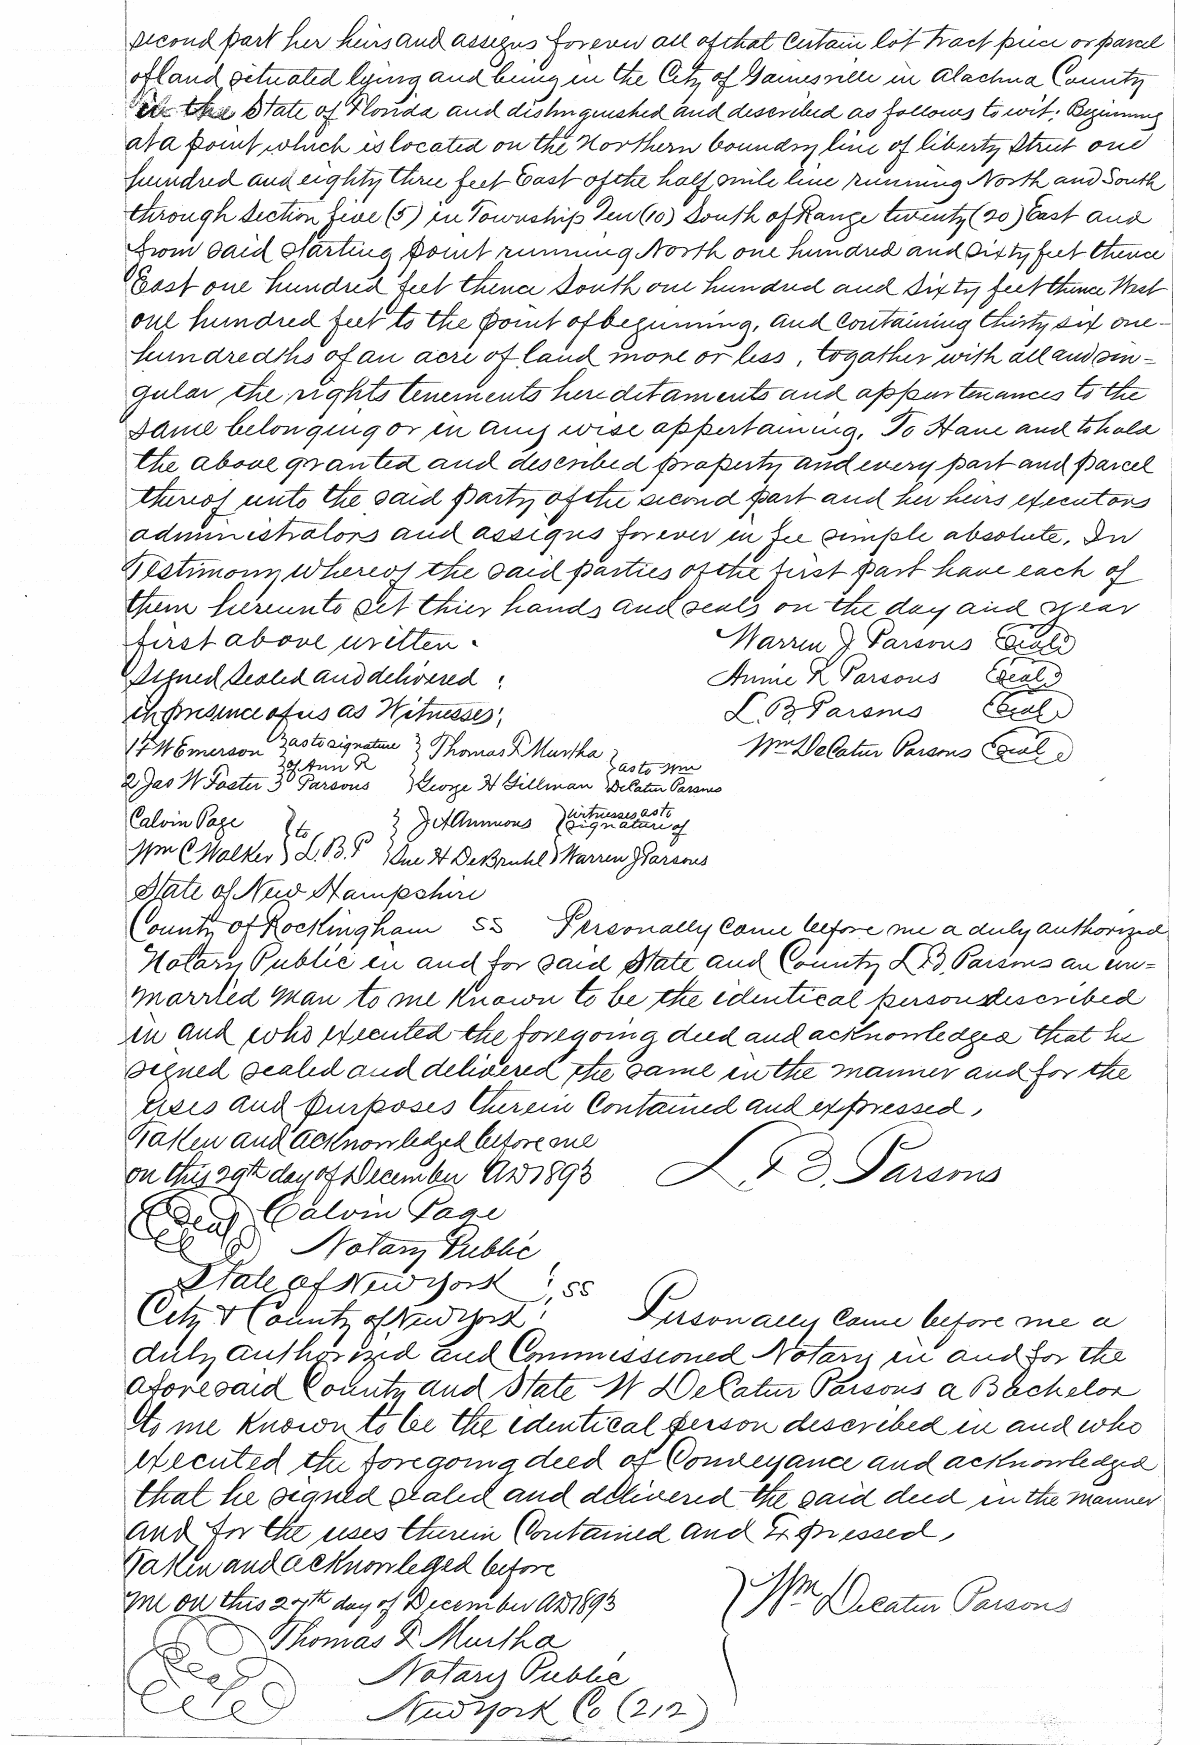 second part her heirs and assigns forever all of that certain lot tract piece or parcel
of land situated lying and being in the City of Gainesville in Alachua County
in the State of Florida and distinguished and described as follows to wit: Beginning
at a point which is located on the Northern boundry line of liberty Street one
hundred and eighty three feet East of the half mile line running North and South
through Section five (5) in Township Ten (10) South of Range twenty (20) East and
from said starting point running North one hundred and sixty feet thence
East one hundred feet thence South one hundred and sixty feet thence West
one hundred feet to the point of beginning, and containing thirty six one-
hundredths of an acre of land more or less, togather with all and sin=
gular the rights tenements hereditaments and appurtenances to the
same belonging or in any wise appertaining. To Have and to hold
the above granted and described property and every part and parcel
thereof unto the said party of the second part and her heirs executors
administrators and assigns forever in fee simple absolute. In
Testimony whereof the said parties of the first part have each of
them hereunto set thier hands and seals on the day and year
first above written. Warren J Parsons (Seal)
Signed Sealed and delivered : Annie R Parsons (Seal)
in presence of us as Witnesses: L. B. Parsons (Seal)
1 F W Emerson } as to signature } Thomas F Murtha } Wm DeCatur Parsons (Seal)
of Ann R as to Wm
2 Jas W Foster } Parsons } George H Gillman DeCatur Parsons
Calvin Page } to } J A Ammons } witnesses as to signature of
Wm C Walker } L. B. P } Sue H DeBruhl } Warren J Parsons
State of New Hampshire
County of Rockingham SS Personally came before me a duly authorized
Notary Public in and for said State and County L. B. Parsons an un=
married man to me known to be the identical person described
in and who executed the foregoing deed and acknowledged that he
signed sealed and delivered the same in the manner and for the
uses and purposes therein contained and expressed.
Taken and acknowledged before me
on this 29th day of December AD 1893 L. B. Parsons
(Seal) Calvin Page
Notary Public
State of New York : SS
City & County of New York : Personally came before me a
duly authorized and Commissioned Notary in and for the
aforesaid County and State W DeCatur Parsons a Bachelor
to me known to be the identical person described in and who
executed the foregoing deed of Conveyance and acknowledged
that he signed sealed and delivered the said deed in the manner
and for the uses therein Contained and Expressed.
Taken and acknowleged before
me on this 27th day of December AD 1893 } Wm Decatur Parsons
Thomas F Murtha
Notary Public
New York Co (212)